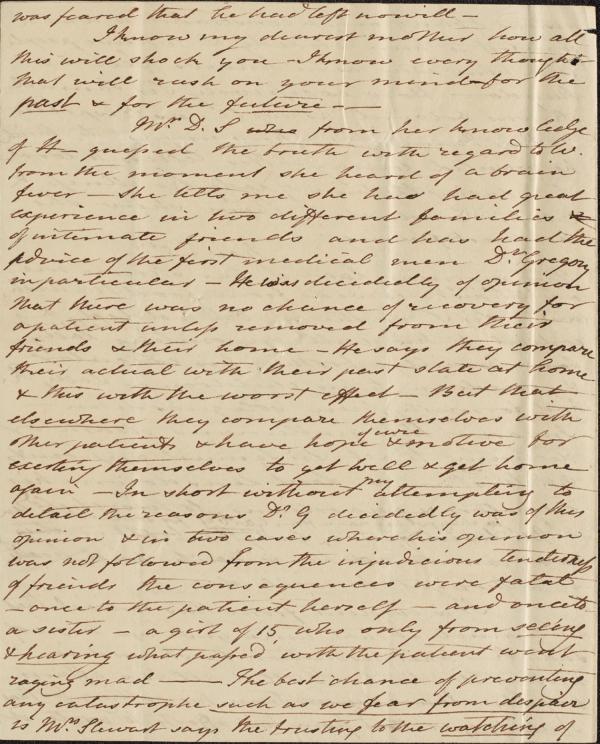 was feared that he had left no will –
I know my dearest mother how all
this will shock you – I know every thought
that will rush on your mind for the
past & for the future –
Mrs D. S from her knowledge
of H guessed the truth with regard to W.
from the moment she heard of a brain
fever – She tells me she has had great
experience in two different families
of intimate friends and has had the
advice of the first medical men Dr Gregory
in particular – He was decidedly of opinion
that there was no chance of recovery for
a patient unless removed from their
friends & their home – He says they compare
their actual with their past state at home
& this with the worst effect – But that
elsewhere they compare themselves with
other patients & have hope & motive for
exerting themselves to get well & get home
again – In short without my attempting to
detail the reasons Dr G decidedly was of this
opinion & in two cases where his opinion
was not followed from the injudicious tenderness
of friends the consequences were fatal
– once to the patient herself – and once to
a sister – a girl of 15 who only from seeing
& hearing what passed with the patient went
raging mad – The best chance of preventing
any catastrophe such as we fear from despair
is Mrs Stewart says the trusting to the watching of